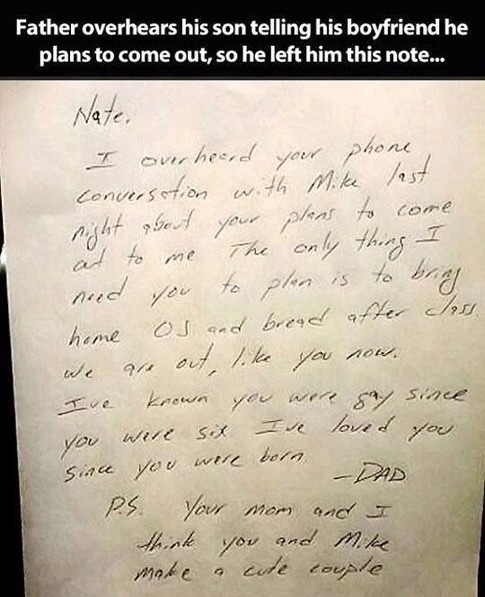 Father overhears his son telling his boyfriend he
plans to come out, so he left him this note...
Nate,
I overheard your phone
conversation with Mike last
night about your plans to come
out to me The only thing I
need you to plan is to bring
home OJ and bread after class.
we are out, like you now.
I've known you were gay since
you were six I've loved you
since you were born.
-DAD
P.S. Your mom and I
think you and Mike
make a cute couple